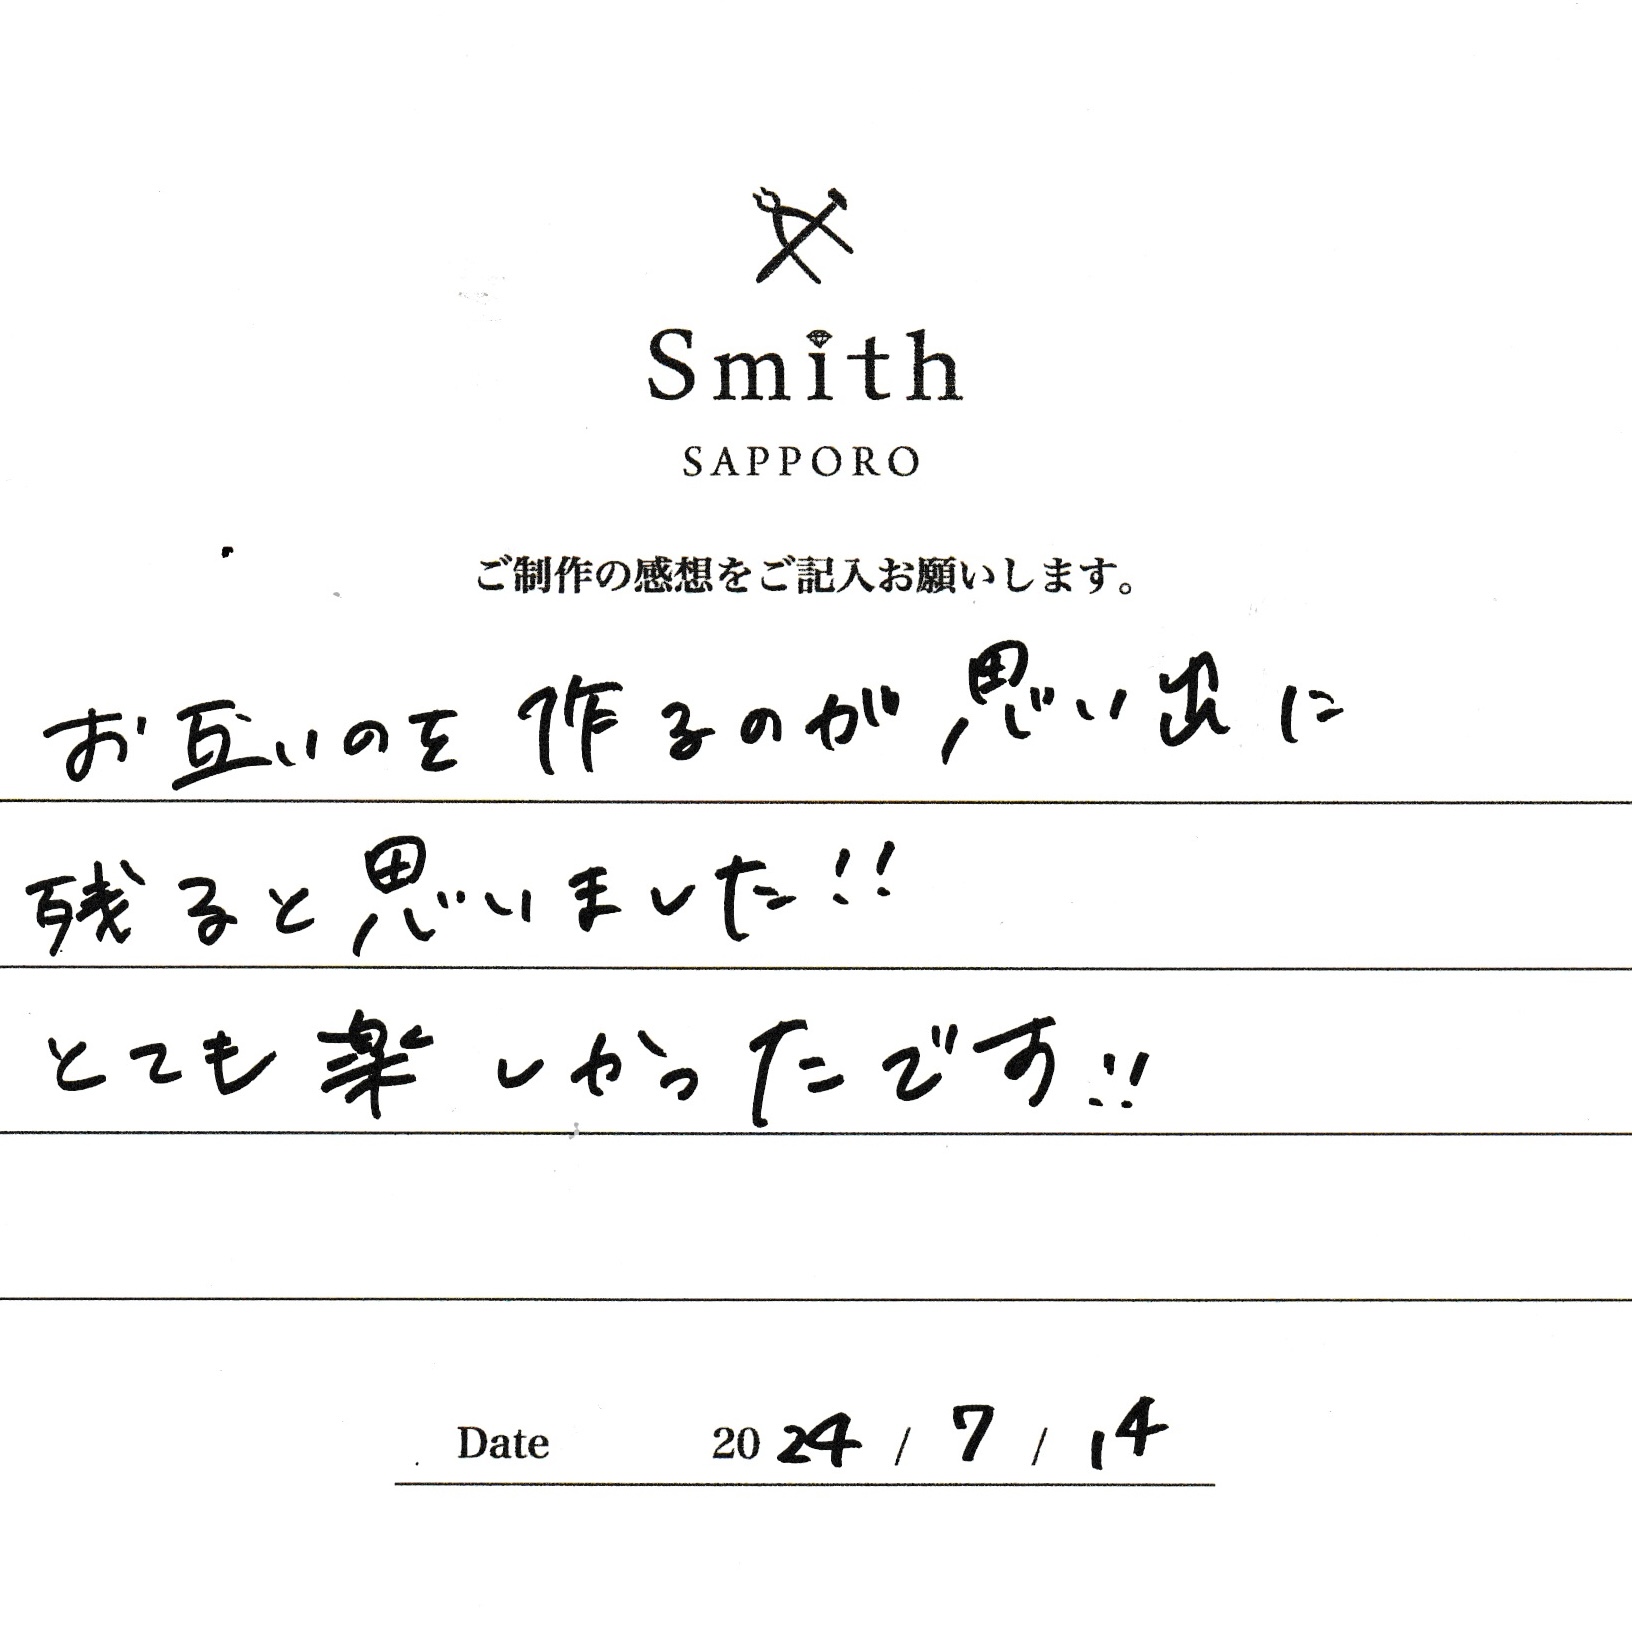 Smith
SAPPORO
ご制作の感想をご記入お願いします。
お互いのを作るのが思い出に
残ると思いました!!
とても楽しかったです!!
Date 2024 / 7 / 14